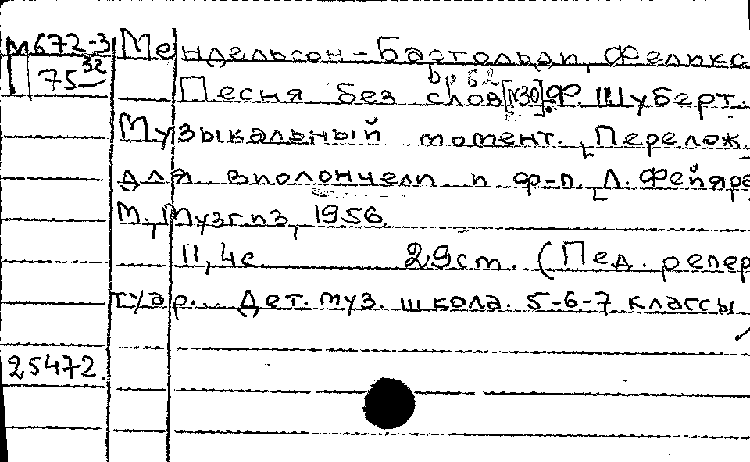 М672-3 Мендельсон-Бартольди, Феликс
75 32
Ор 62
Песня без слов [№30]. Ф. Шуберт.
Музыкальный момент. [Перелож.
для виолончели и ф-п. Л. Фейяр
М., Музгиз, 1956.
11, 4с 29см. (Пед. репер
туар. Дет. муз. школа. 5-6-7 классы
25472.